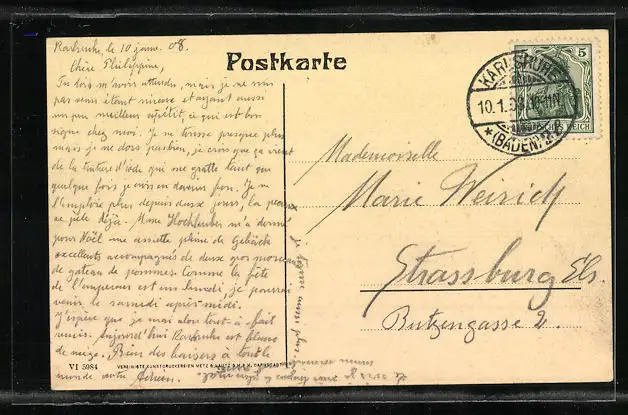 Karlsruhe, le 10 janv. 08.
Chère Philippine,
Tu dois m'avoir attendu, mais je ne suis
pas sens étant nerveuse et ayant aussi
un peu meilleur appétit, ce qui est bon
signe chez moi. Je ne tousse presque plus
mais je ne dors pas bien, je crois que ça vient
de la teinture d'iode qui me gratte tant que
quelque fois je crois en devenir folle. Je ne
l'emploie plus depuis deux jours, la peau
se pèle déjà. Mme Hochhuber m'a donné
pour Noël une assiette pleine de Gebäck
excellents accompagnés de deux gros morceaux
de gateau de pommes. Comme la fête
de l'empereur est un lundi je pourrai
venir le samedi après-midi.
J'espère que je irai alors tout à fait
mieux. Aujourd'hui Karlsruhe est blanc
de neige. Bien des baisers à tout le
monde votre
Postkarte
KARLSRUHE
10.1.08
*(BADEN)
5
DEUTSCHES REICH
Mademoiselle
Marie Weirich
Strassburg Els.
Butzengasse 2.
VI 5984
VEREINIGTE KUNSTDRUCKEREIEN METZ & LAUTZ G.M.B.H. DARMSTADT